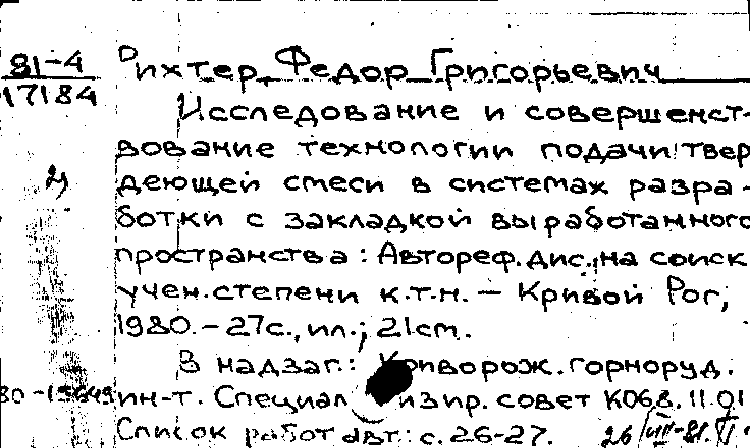 81-4
17184
Рихтер Федор Григорьевич
Исследование и совершенст-
вование технологии подачи твер
деющей смеси в системах разра-
ботки с закладкой выработанного
пространства: Автореф. дис. на соиск
учен. степени к.т.н. — Кривой Рог,
1980. - 27с., ил.; 21см.
В надзаг.: Криворож. горноруд.
ин-т. Специализир. совет К068.11.01
Список работ авт: с. 26-27.